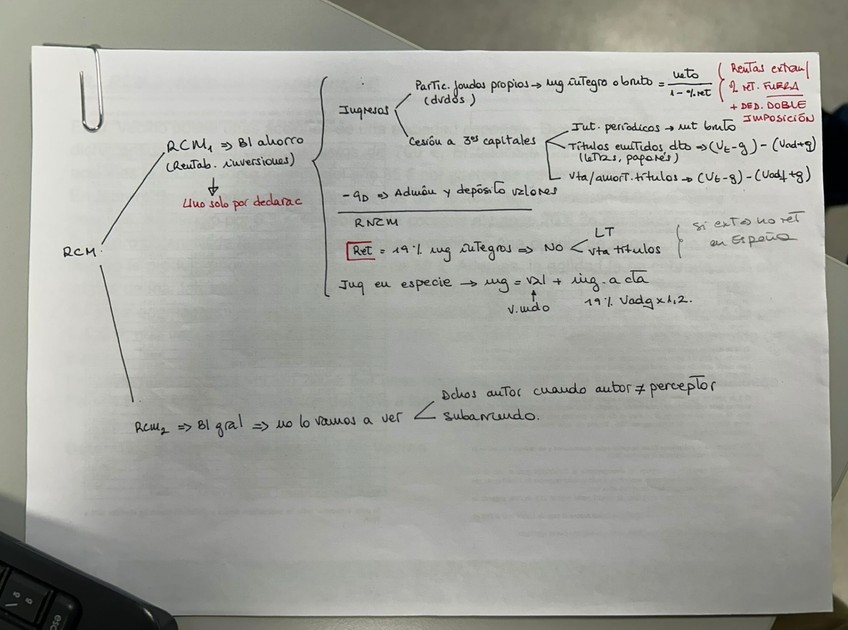 RCM.
RCM₁ => BI ahorro
(Rentab. inversiones)
Uno solo por declarac
Ingresos
Partic. fondos propios → ing íntegro o bruto = neto / 1 - % ret
(dvdos)
Rentas extran/
2 ret. FUERA
+ DED. DOBLE
IMPOSICIÓN
Cesión a 3ᵒˢ capitales
Int. periódicos → int bruto
Títulos emitidos dto → (Vt-g) - (Vad+g)
(letras, pagarés)
Vta/amort. títulos → (Vt-g) - (Vad+g)
- gD => Admón y depósito valores
RNCM
Ret = 19% ing íntegros => NO
LT
vta títulos
Si ext => no ret
en España
Ing en especie → ing = val + ing. a cta
V. mdo
19% Vadq x 1,2.
RCM₂ => BI gral => no lo vamos a ver
Dchos autor cuando autor ≠ perceptor
subarriendo.
esc